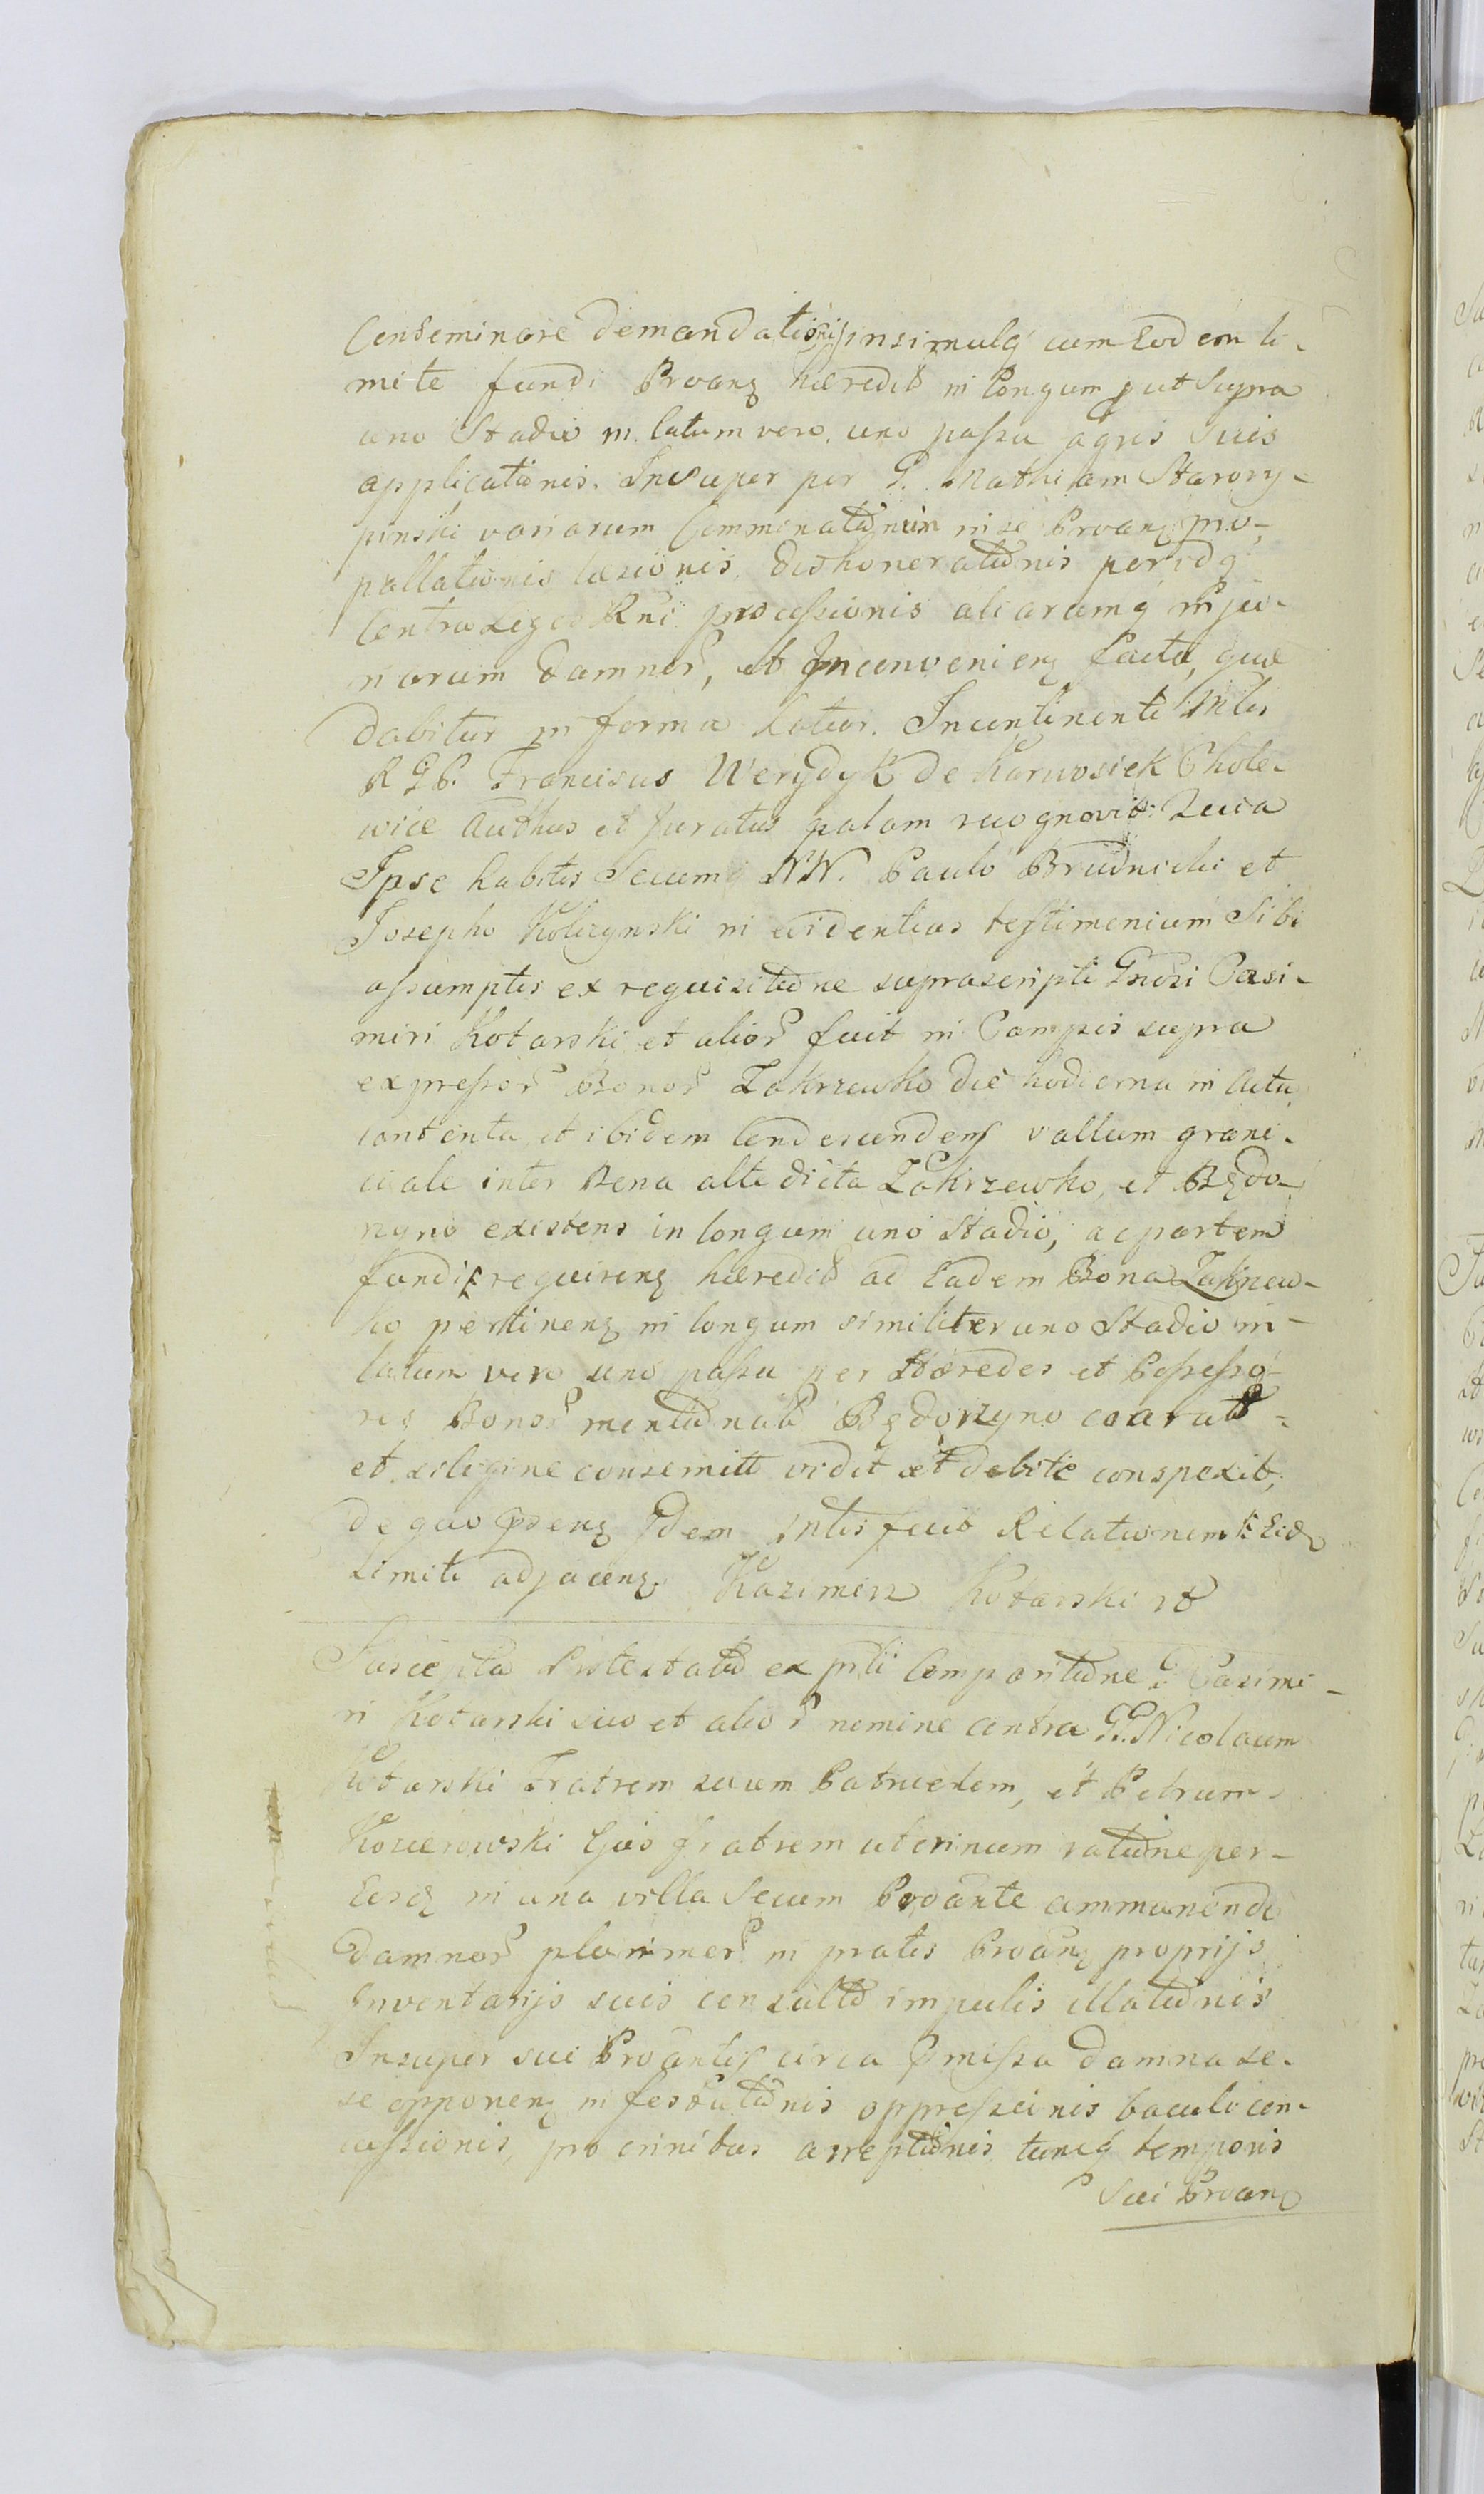 Conseminare demandationis insimulq cum Eodem li-
mite fundi Proanz hæredit in longum ut Supra
uno Stadio in latum vero uno passu agris Suis
applicationis. Insuper per G. Mathiam Starory-
pinski variarum Comminationum in se Proanz pro-
pallationis læsionis, dishonerationis periodq
Contra Leges Rni processionis aliarumq inju-
riarum damnor, et Inconvenienz facta, quæ
dabitur in forma latior. Incontinenti Mler
RGP. Franciscus Werydyk de Karwosiek Chole-
wice Authus et Juratus palam recognovit. Quia
Ipse habitis Secum NN. Paulo Brudnicki et
Josepho Kolczynski in evidentius testimonium Sibi
assumptis ex requisitione suprascripti Gnosi Casi-
miri Kotarski et alior fuit in Campis supra
expressor Bonor Zakrzewko die hodierna in Actu
contenta et ibidem Condescendens vallum grani-
ciale inter Bona alte dicta Zakrzewko, et Będo-
rzyno existens in longum uno Stadio, ac partem
fundi requirenz hæredit ad Eadem Bona Zakrzew-
ko pertinenz in longum similiter uno Stadio in
latum vero uno passu per Hæredes et Possesso-
res Bonor mentionat Będorzyno coarat
et siligine consemitt vidit et debite conspexit,
de quo psenz Idem Mler fecit Relationem Eid
Limiti adjacenz Kazimierz Kotarski
Suscepta Protestatio ex psti Comparitione G. Casimi-
ri Kotarski suo et alior nomine contra GG. Nicolaum
Kotarski Fratrem suum Patruelem, et Petrum
Ejus fratrem uterinum ratione per
Eosq in una villa Secum Proante commanendo
Damnor plurimor in pratis Proanz proprijs
Inventarijs suis consulto impulis illationis
Insuper sui Proantis circa pmissa damna se-
se opponenz in oppressionis baculo con-
cussionis, pro crinibus arreptionis tuncq temporis
Sui Proanz